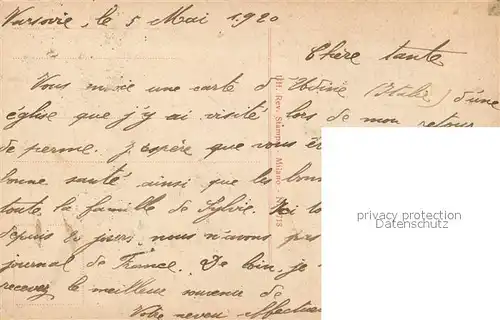 Varsovie, le 5 Mai 1920
Chère tante
Vous une carte d'Udine (Italie) d'une
église que j'y ai visité lors de mon retour
de perme. J'espère que vous
bonne santé ainsi que les
toute la famille de Sylvie.
depuis jours, nous n'avons pas
journal de France. De loin, je
recevez le meilleur souvenir de
Votre neveu
Uff. Rev. Stampa Milano
privacy protection
Datenschutz